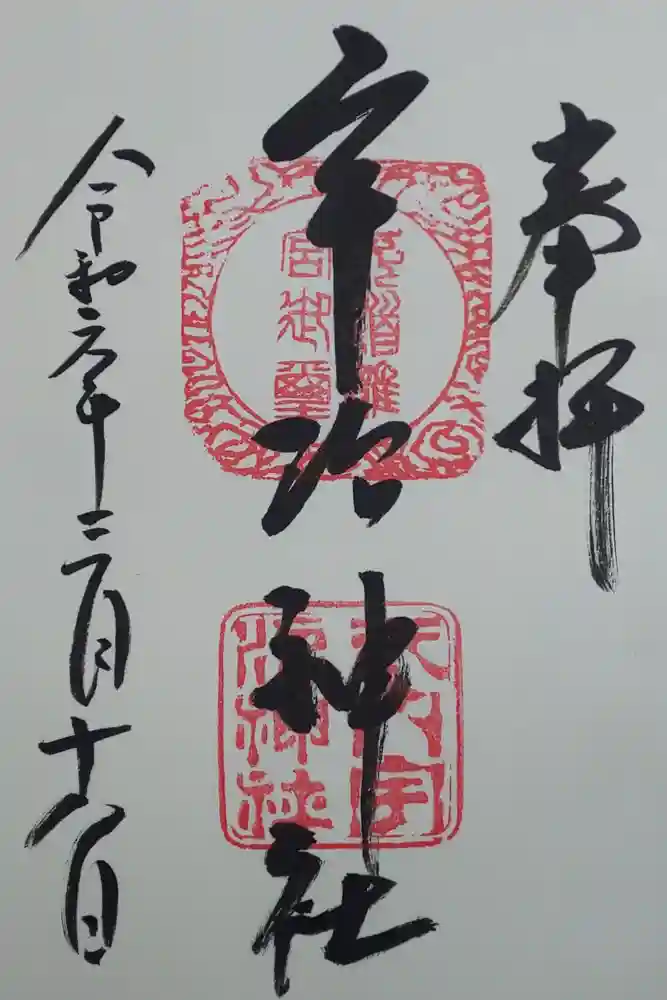 奉拝
宇治神社
宮御璽
式内宇
治神社
令和六年三月十八日